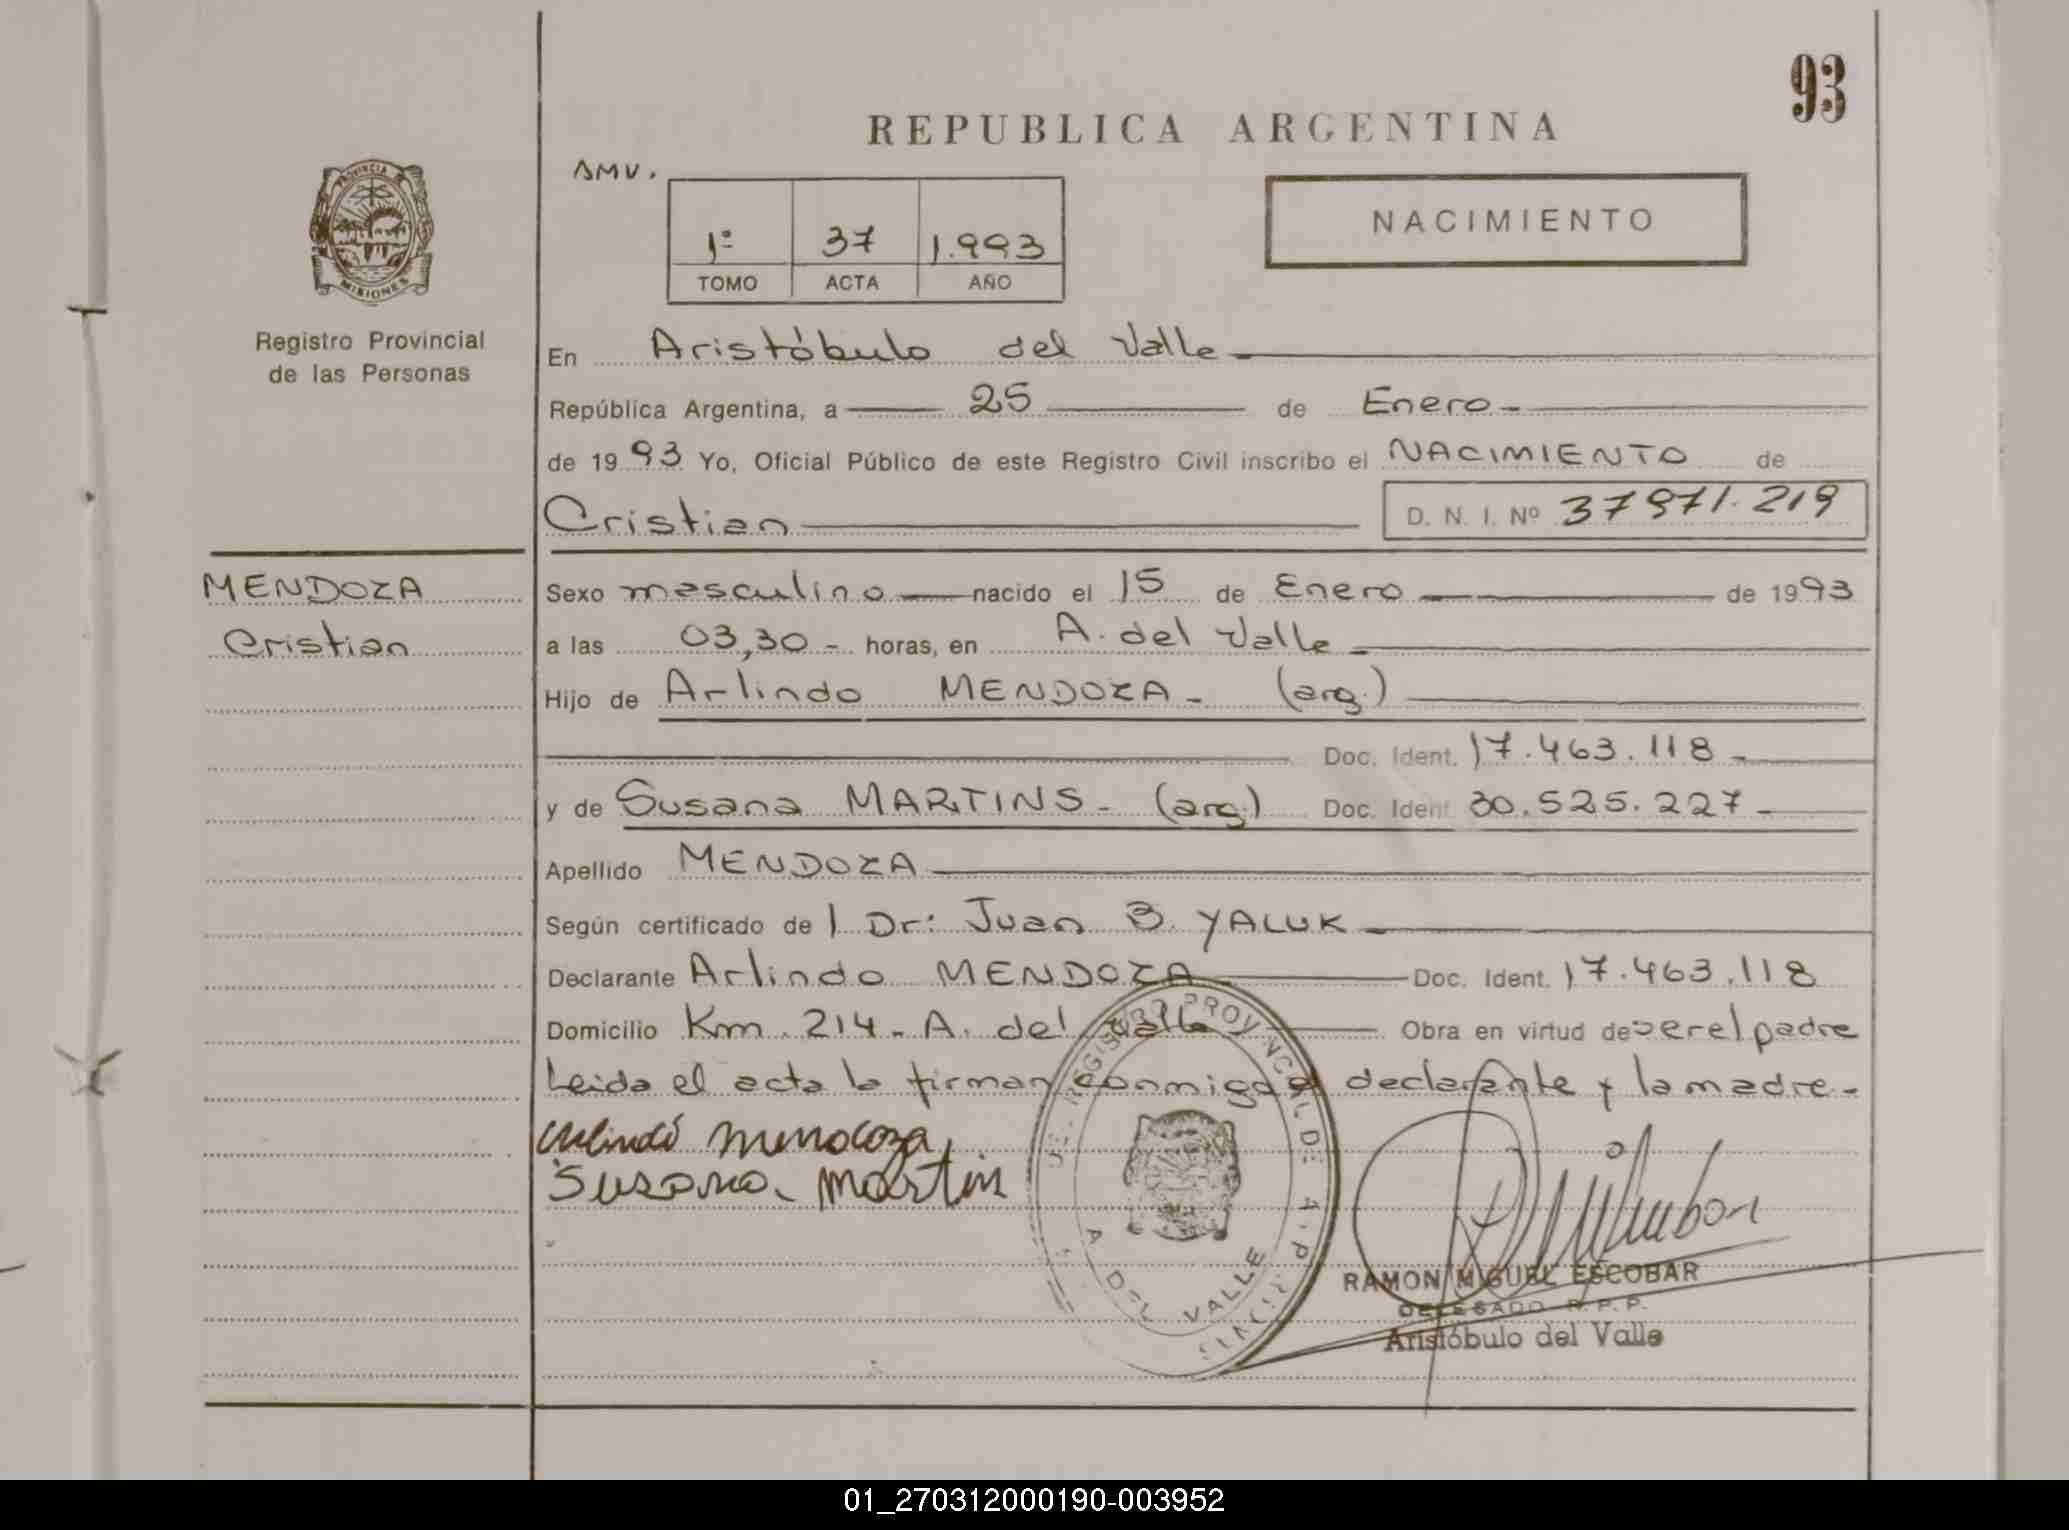 93
REPUBLICA ARGENTINA
AMV.
1º 37 1.993
TOMO ACTA AÑO
NACIMIENTO
PROVINCIA DE
MISIONES
Registro Provincial
de las Personas
En Aristóbulo del Valle
República Argentina, a 25 de Enero
de 1993 Yo, Oficial Público de este Registro Civil inscribo el NACIMIENTO de
Cristian D. N. I. Nº 37971.219
MENDOZA
Cristian
Sexo masculino nacido el 15 de Enero de 1993
a las 03,30 - horas, en A. del Valle
Hijo de Arlindo MENDOZA - (arg.)
Doc. Ident. 17.463.118 -
y de Susana MARTINS - (arg.) Doc. Ident 30.525.227 -
Apellido MENDOZA
Según certificado de l Dr: Juan B. YALUK
Declarante Arlindo MENDOZA Doc. Ident. 17.463.118
Domicilio Km. 214 - A. del Valle Obra en virtud de ser el padre
Leida el acta la firman conmigo el declarante y la madre -
Arlindo Mendoza
Susana Martin
REGISTRO PROVINCIAL DE
A DEL VALLE
RAMON MIGUEL ESCOBAR
DELEGADO R. P. P.
Aristóbulo del Valle
01_270312000190-003952